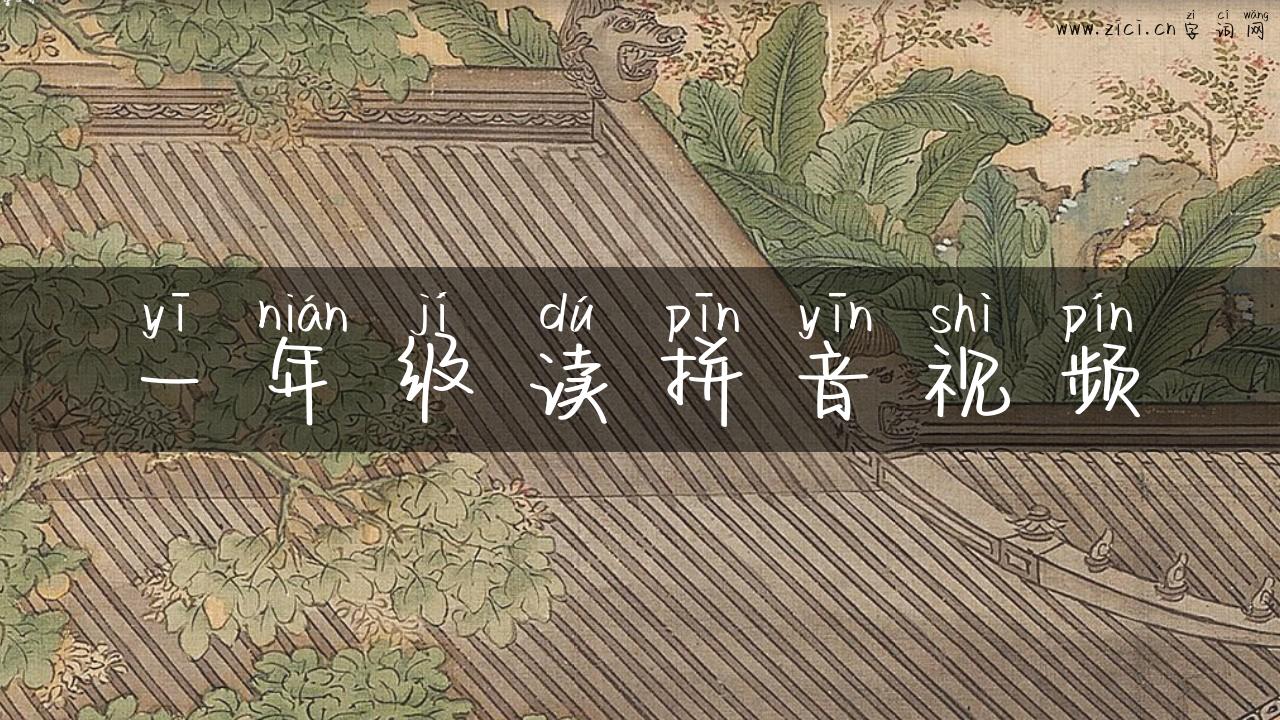 zì cí wǎng
www.zici.cn 字 词 网
yī nián jí dú pīn yīn shì pín
一 年 级 读 拼 音 视 频